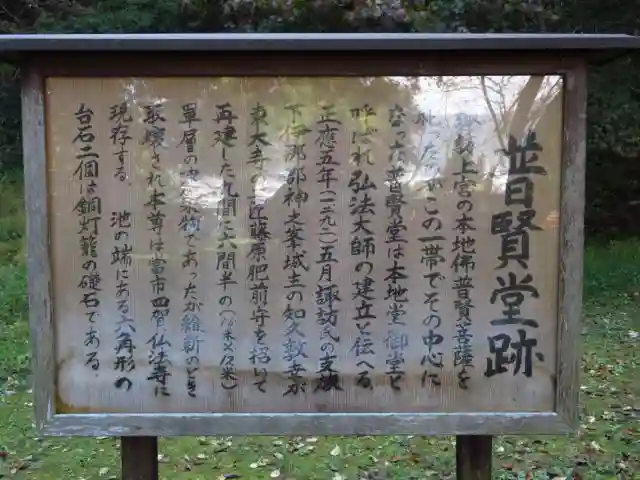 普賢堂跡
諏訪上宮の本地佛普賢菩薩を
祀ったのがこの一帯でその中心に
なった普賢堂は本地堂御堂と
呼ばれ弘法大師の建立と伝へる
正應五年(一二九二)五月諏訪氏の支族
下伊那郡神之峯城主の知久敦幸が
東大寺の工匠藤原肥前守を招いて
再建した九間に六間半の
単層の建物であったが維新のとき
取壊され本尊は当市四賀仏法寺に
現存する。池の端にある六角形の
台石二個は銅灯籠の礎石である。